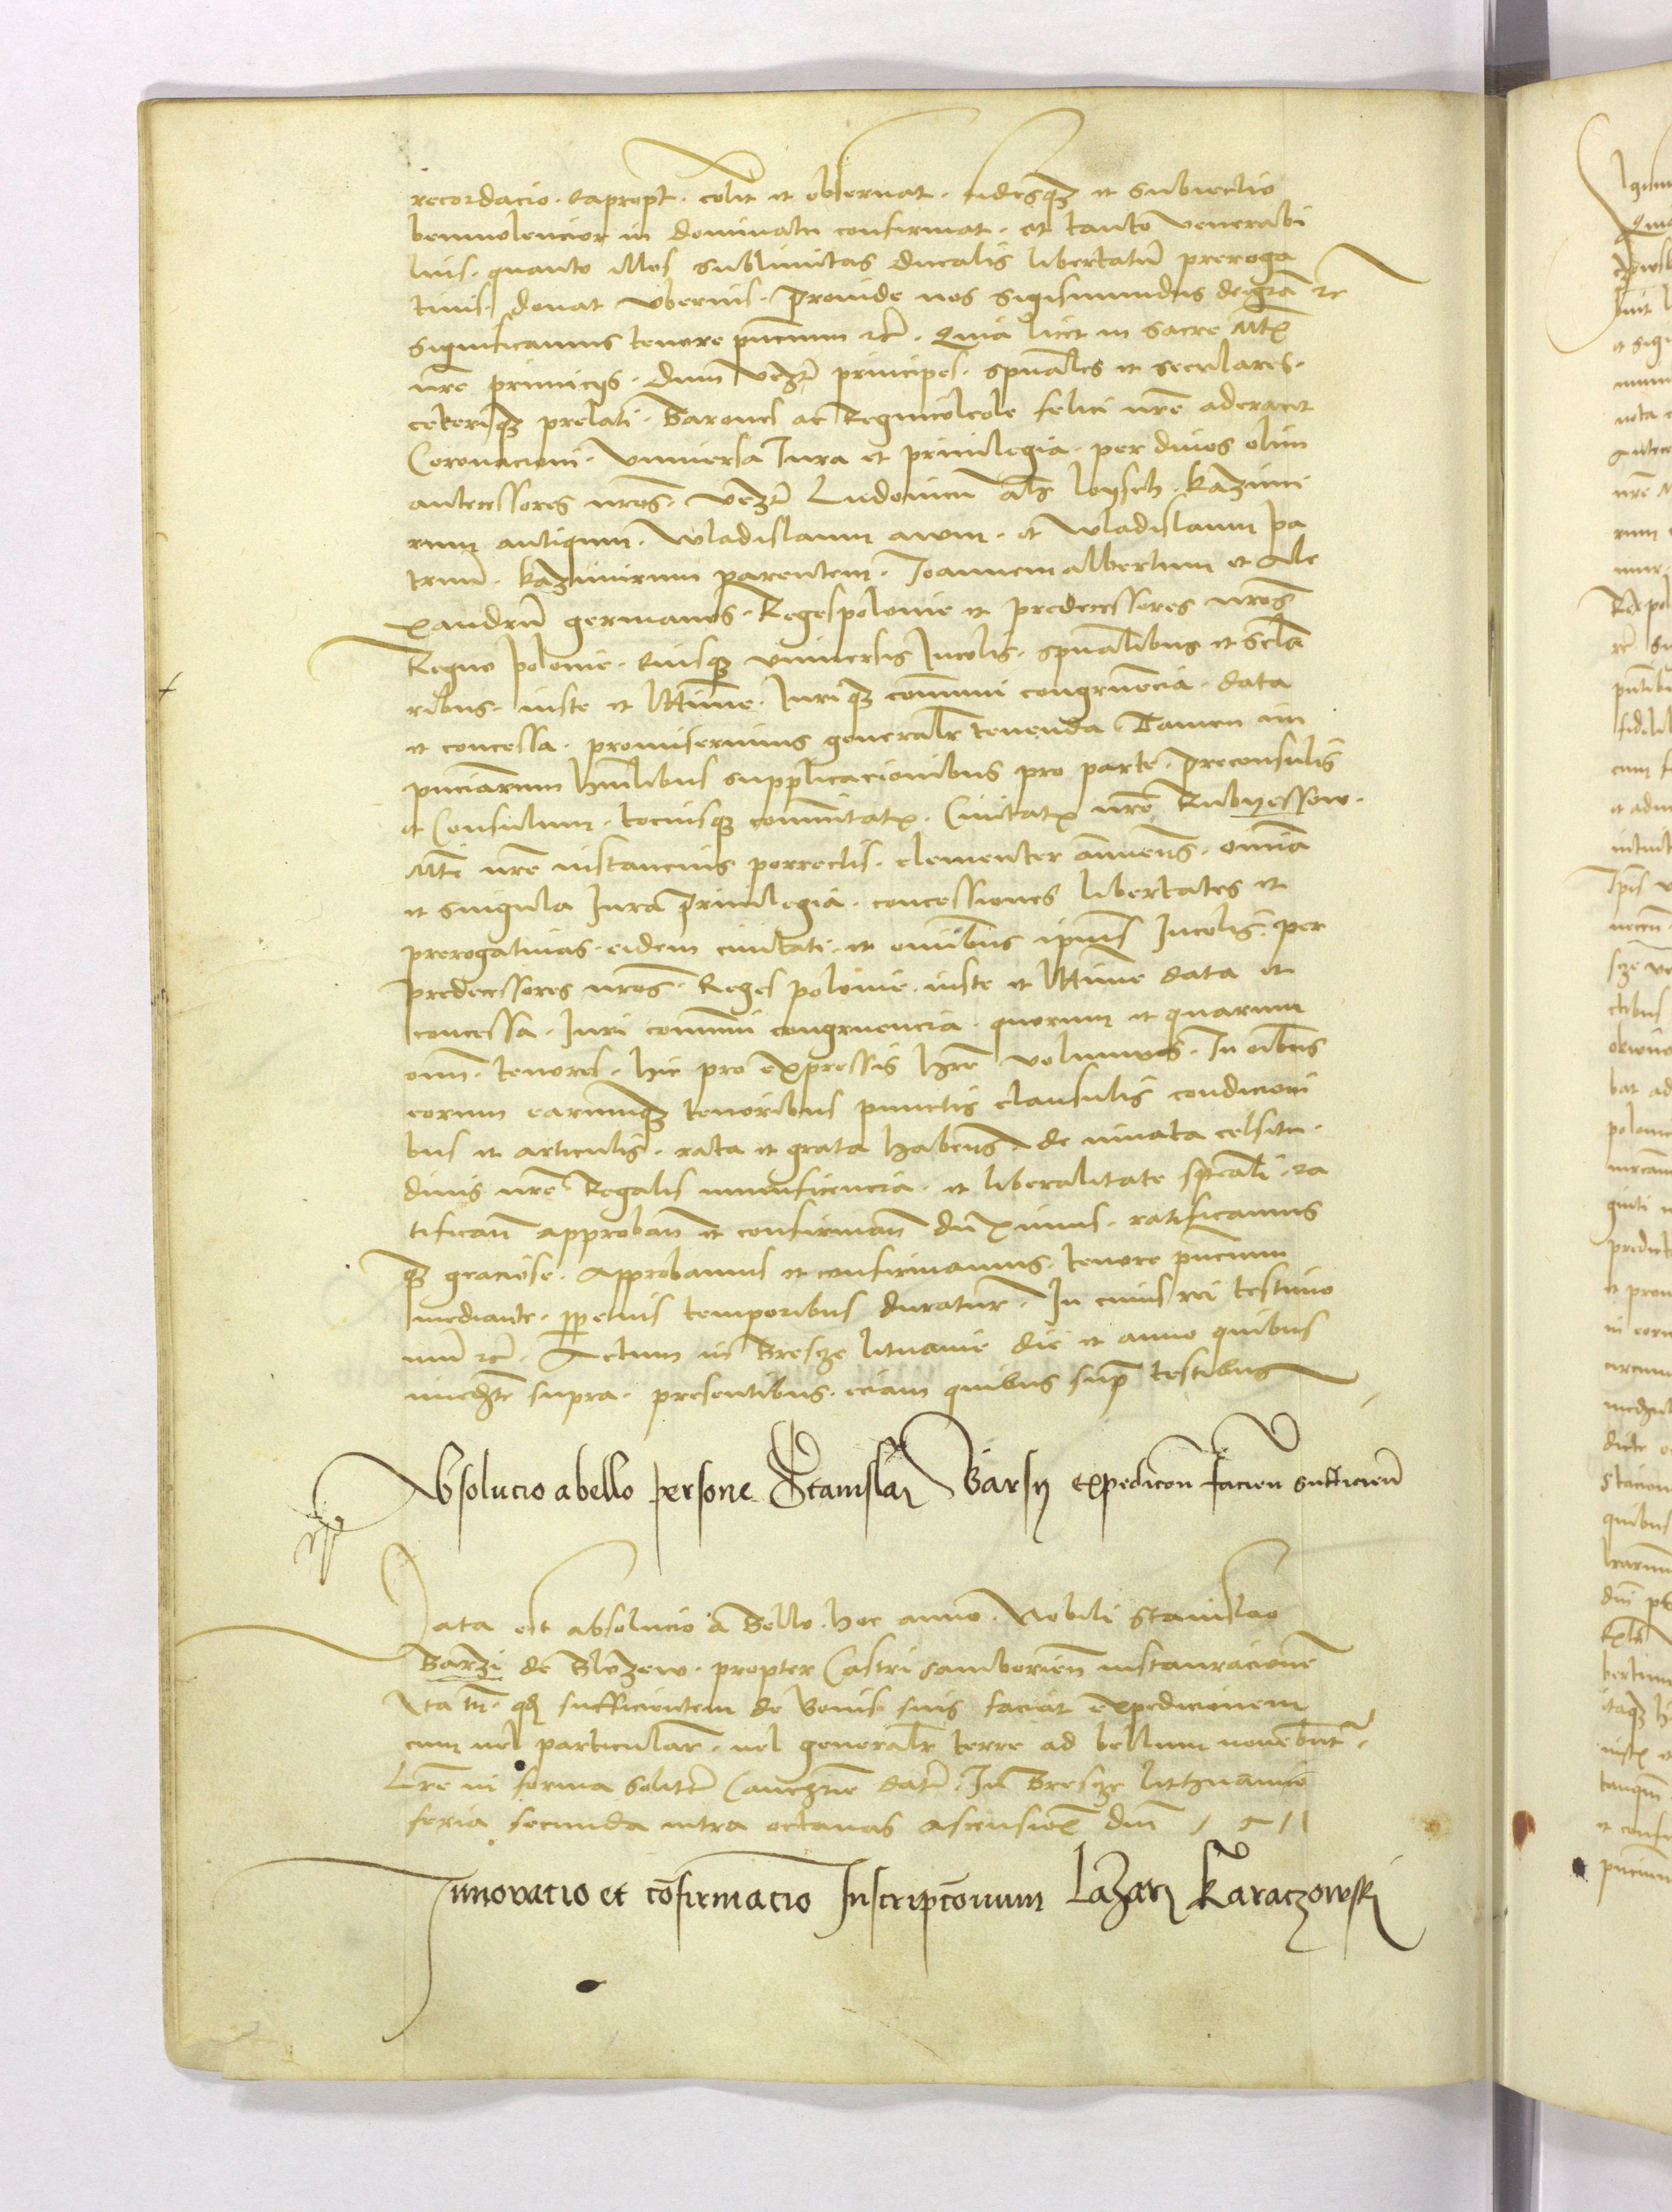 recordacio. eapropt. colit et obseruat. fidesqz et subiectio
beniuolencior in dominatu confirmat. et tanto venerabi
lius. quanto illos sublimitas ducalis libertatũ preroga
tiuis donat vberius. Proinde nos Sigismundus dei grã rc
significamus tenore pñcium rcʳ. Quia licet in sacre Mtꝭ
nrẽ primicijs. dum vcꝫt principes. spũales et seculares.
ceteriqz prelati. Barones ac Regnicolcole felici nrẽ aderant
Coronacioni. vniuersa Iura et priuilegia. per diuos olim
antecessores nrõs. vcꝫt Ludouicũ als loysch. Kazimi
rum antiquum. Wladislaum auum. et Wladislaum pa
truũ. Kazimirum parentem. Joannem albertum et Ale
xandrũ germanos. Reges polonie et predecessores nrõs
Regno polonie. eiusqz vniuersis Incolis. spũalibus et secla
ribus. iuste et lttime. Iuriqz commũi congruencia. data
et concessa. promiserimus generalr tenenda. Tamen im
pñciarum humilibus supplicacionibus pro parte. preconsulis
et Consulum. tociusqz commitatꝭ. Ciuitatꝭ nrẽ Rubyessow.
Mti nrẽ instancius porrectis. clementer annuens. omnia
et singula Iura Priuilegia. concessiones libertates et
prerogatiuas. eidem ciuitati. et omibus ipius Incolis. per
predecessores nrõs. Reges polonie. iuste et lttime data et
concessa. Iuri commũi congruencia. quorum et quarum
omn. tenores. hic pro expressis hrẽ volumus. In oĩbus
eorum earumqz tenoribus punctis clausulis condicioni
bus et articulis. rata et grata habens. de innata celsitu.
dinis nrẽ Regalis munificencia. et liberalitate speali. ra
tifican̄ approban̄ et confirman̄ duximus. ratificamus
qz graciose. approbamus et confirmamus. tenore pñcium
mediante. ꝑpetuis temporibus duratur. In cuius rei testimo
niũ rcʳ. Actum in Bresze lituanie die et anno quibus
immedꝫte supra. presentibus. eciam quibus supra testibus
Absolucio a bello persone Stanislai Barsy expedicõn facien̄ sufficien̄
Data est absolucio a Bello. hoc anno. Nobili Stanislao
Barzi de Blozew. propter Castri Samborien̄ instauracionẽ
Ita tñ. qd sufficientem de bonis suis faciat expedicionem
cum vel particularr. vel generalr terre ad bellum mouebunt.
Lrẽ in forma solitẽ Cancꝫrie datẽ. In Bresze litthuanie
feria secunda intra octauas ascensioꝭ dnĩ 1511
Innovacio et cõfirmacio Inscripcõnum Lazari Karaczowski